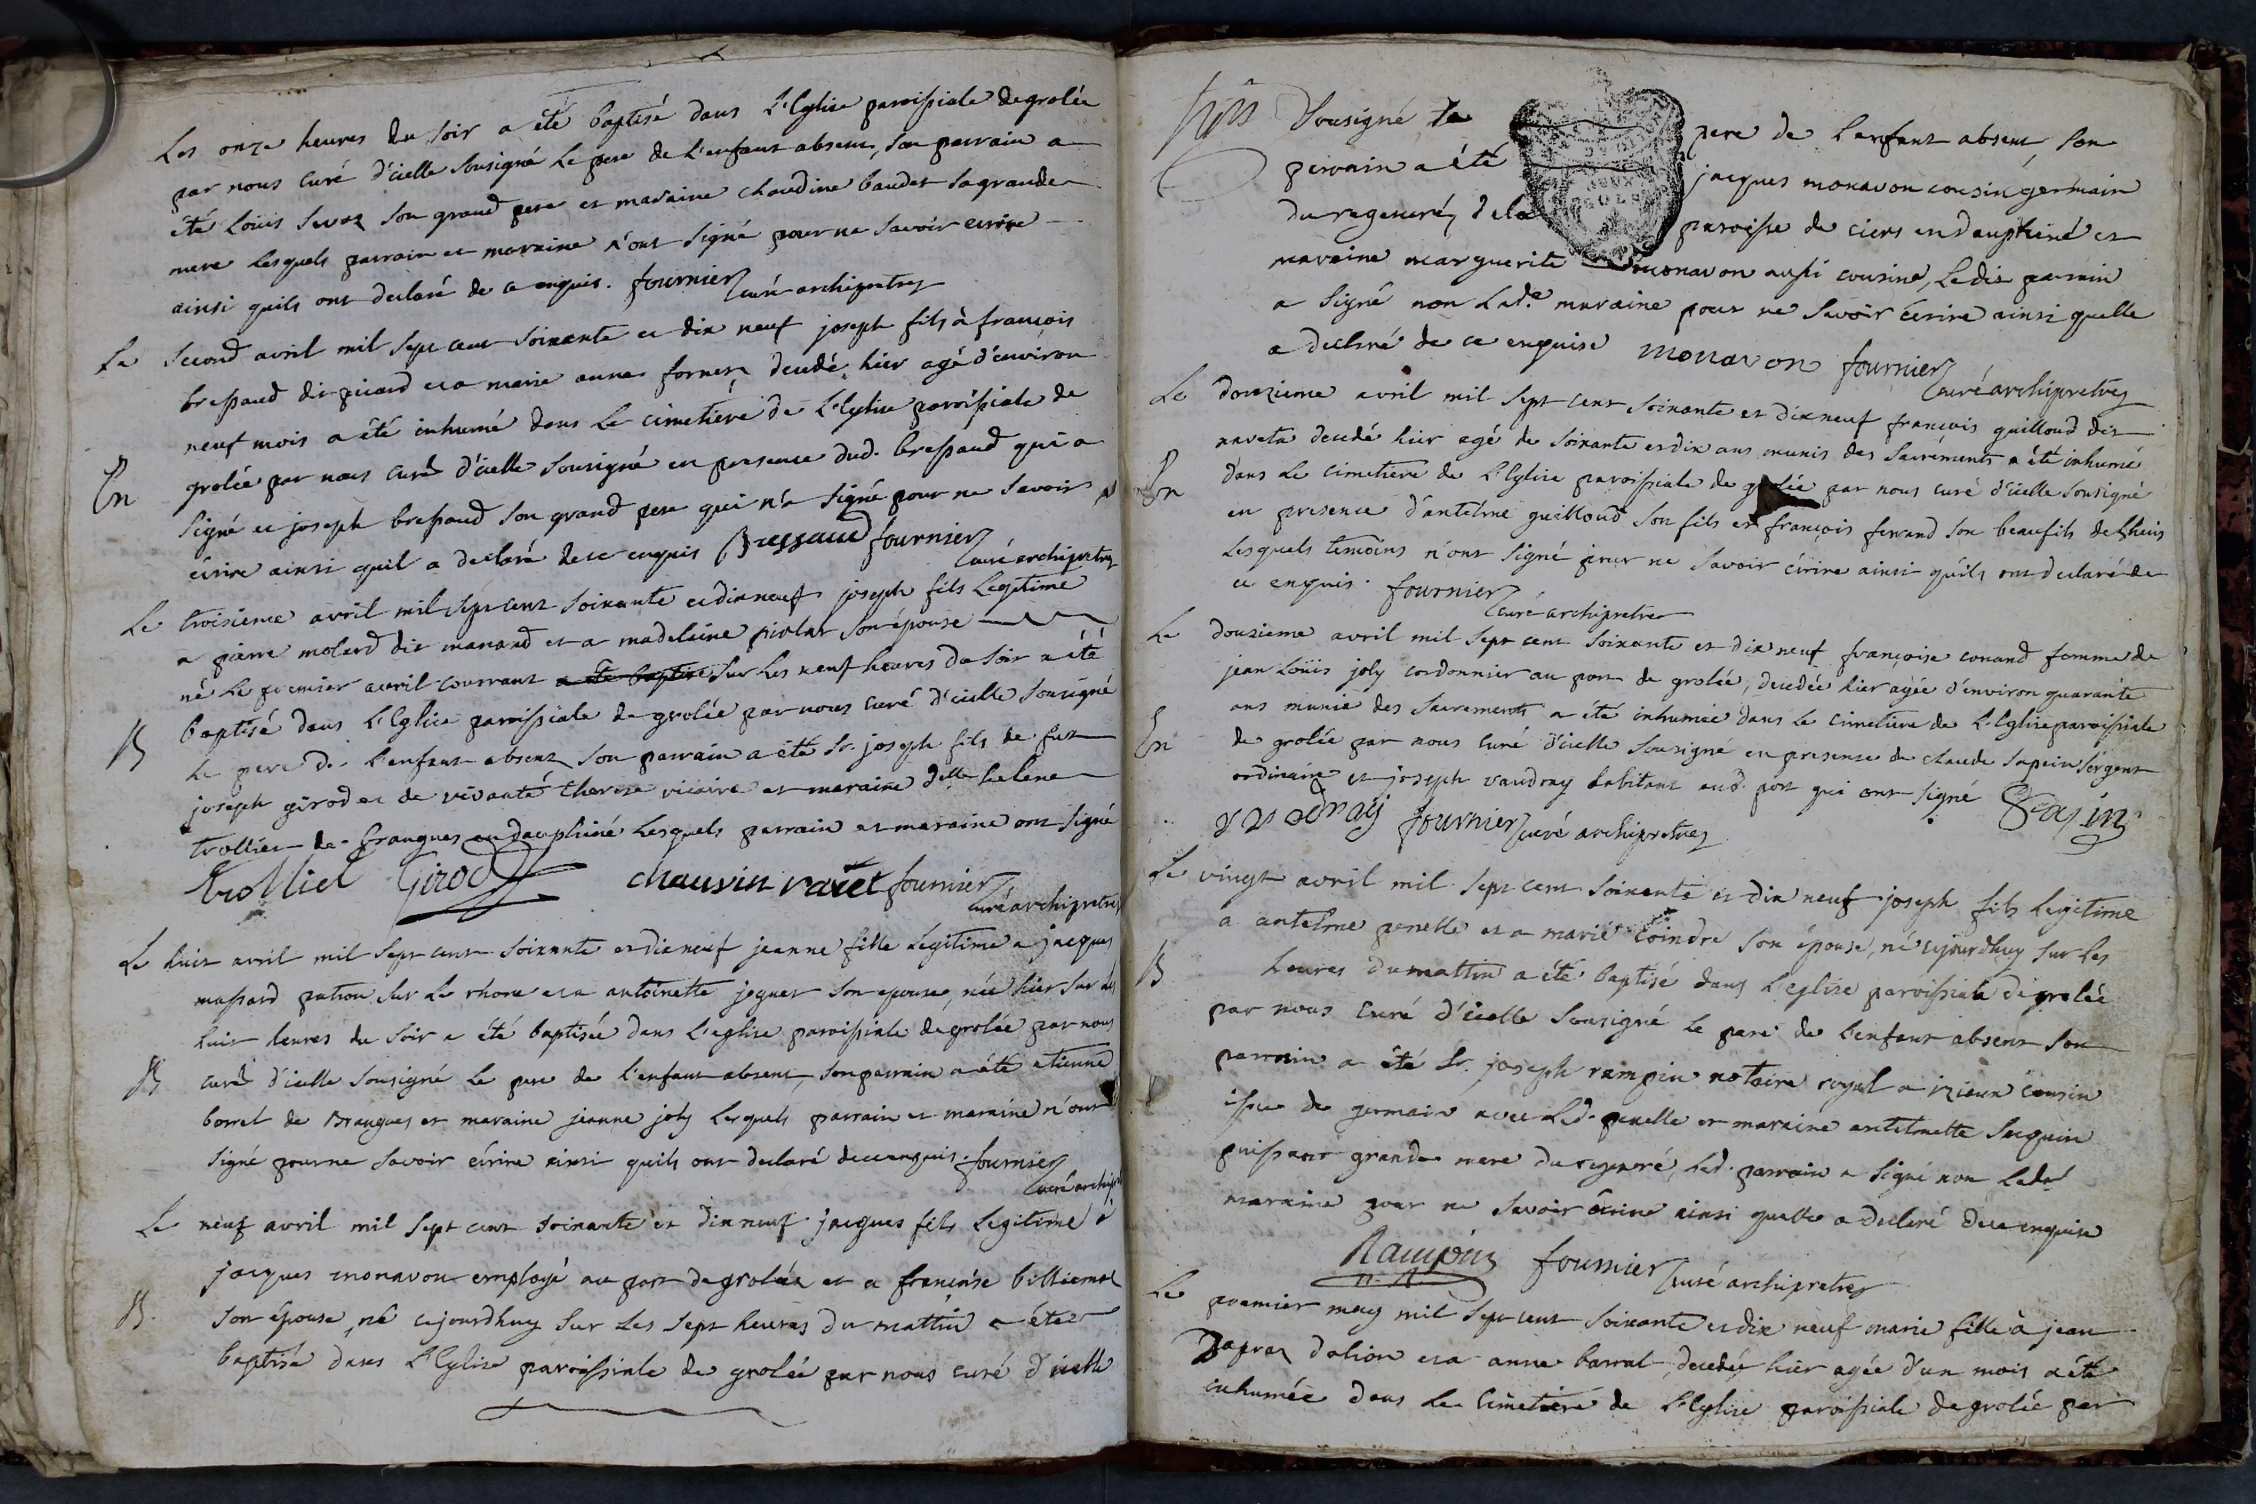 Les onze heures du soir a été baptisé dans L'Eglise paroissiale de grolée
par nous curé d'icelle sousigné le pere de l'enfant absent, son parrain a
été Loüis son grand pere et maraine claudine baudet sa grande
mere lesquels parrain et maraine n'ont signé pour ne savoir écrire
ainsi quils ont declaré de ce enquis. fournier curé archipretre
Le second avril mil sept cent soixante et dix neuf joseph fils à françois
bressaud dit picard et a marie anne decedé hier agé d'environ
neuf mois a été inhumé dans le cimetiere de L'Eglise paroissiale de
En grolée par nous curé d'icelle sousigné en presence dud. bressaud qui a
signé et joseph bressaud son grand pere qui n'a signé pour ne savoir
écrire ainsi quil a declaré de ce enquis Bressaud fournier
curé archipretre
Le troisieme avril mil sept cent soixante et dix neuf joseph fils Legitime
a pierre molard dit manand et a madelaine piolat son épouse
né le premier avril courrant a été baptisé sur les neuf heures du soir a été
B baptisé dans L'Eglise paroissiale de grolée par nous curé d'icelle sousigné
le pere de l'enfant absent son parrain a été Sr. joseph fils de fut
joseph girod et de vivante therese vicaire et maraine dlle helene
trollier de brangues en dauphiné lesquels parrain et maraine ont signé
Trolliet Girod chauvin varet fournier
curé archipretre
Le huit avril mil sept cent soixante et dix neuf jeanne fille legitime a jacques
massard patron sur le rhone et a antoinette joguet son epouse, née hier sur les
huit heures du soir a été baptisée dans L'eglise paroissiale de grolée par nous
B curé d'icelle sousigné le pere de l'enfant absent, son parrain a été etienne
borrel de Brangues et maraine jeanne joly lesquels parrain et maraine n'ont
signé pour ne savoir écrire ainsi quils ont declaré de ce enquis. fournier
curé archipretre
Le neuf avril mil sept cent soixante et dix neuf jacques fils Legitime à
jacques monavon employé au port de grolée et a françoise billiemaz
B. son épouse, né cejourdhuy sur les sept heures du mattin a été
baptisé dans L'Eglise paroissiale de grolée par nous curé d'icelle
sousigné Le pere de l'enfant absent, son
parrain a été jacques monavon cousin germain
du regeneré, de la paroisse de ciers en dauphiné et
maraine marguerite monavon aussi cousine, Ledit parrain
a signé non Lade. maraine pour ne savoir écrire ainsi quelle
a declaré de ce enquise monavon fournier
curé archipretre
Le douzieme avril mil sept cent soixante et dix neuf françois guilloud dit
naveta decedé hier agé de soixante et dix ans munis des sacrements a été inhumé
En dans le cimetiere de L'Eglise paroissiale de grolée par nous curé d'icelle sousigné
en presence d'antelme guilloud son fils et françois ferrand son beaufils de Lhuis
lesquels temoins n'ont signé pour ne savoir écrire ainsi qu'ils ont declaré de
ce enquis. fournier
curé archipretre
Le douzieme avril mil sept cent soixante et dix neuf françoise conand femme de
jean Loüis joly cordonnier au port de grolée, decedée hier agée d'environ quarante
ans munie des sacrements a été inhumée dans le cimetiere de L'Eglise paroissiale
En de grolée par nous curé d'icelle sousigné en presence de claude sapein sergent
ordinaire et joseph vaudray habitant aud. port qui ont signé Seapin
vvodray fournier curé archipretre
Le vingt avril mil sept cent soixante et dix neuf joseph fils Legitime
a antelme penelle et a marie Coindre son épouse, né cejourdhuy sur les
B heures du mattin a été baptisé dans L'eglise paroissiale de grolée
par nous curé d'icelle sousigné le pere de l'enfant absent son
parrain a été Sr. joseph rampin notaire royal a izieux cousin
issue de germain avec led. penelle et maraine antelmette
puissant grande mere du regeneré, led. parrain a signé non lade.
maraine pour ne savoir écrire ainsi quelle a declaré de ce enquise
Rampin fournier curé archipretre
Le premier may mil sept cent soixante et dix neuf marie fille à jean
d'olion et a anne barral, decedée hier agée d'un mois a été
inhumée dans le cimetiere de L'Eglise paroissiale de grolée par